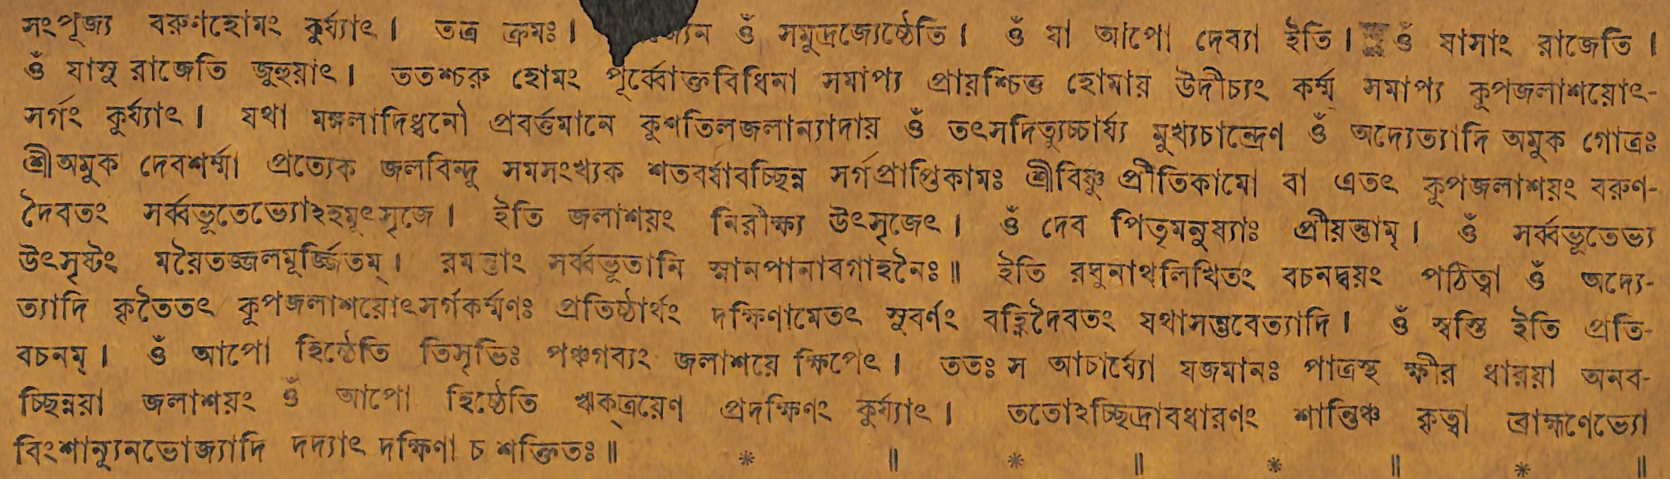 সংপূজ্য বরুণহোমং কুর্য্যাৎ। তত্র ক্রমঃ। ওঁ সমুদ্রজ্যেষ্ঠেতি। ওঁ যা আপো দেব্যা ইতি। ওঁ যাসাং রাজেতি।
ওঁ যাসু রাজেতি জুহুয়াৎ। ততশ্চরু হোমং পূর্ব্বোক্তবিধিনা সমাপ্য প্রায়শ্চিত্ত হোমায় উদীচ্যং কর্ম্ম সমাপ্য কুপজলাশয়োৎ-
সর্গং কুর্য্যাৎ। যথা মঙ্গলাদিধ্বনৌ প্রবর্ত্তমানে কুণতিলজলান্যাদায় ওঁ তৎসদিত্যুচ্চার্য্য মুখ্যচান্দ্রেণ ওঁ অদ্যেত্যাদি অমুক গোত্রঃ
শ্রীঅমুক দেবশর্ম্মা প্রত্যেক জলবিন্দু সমসংখ্যক শতবর্ষাবচ্ছিন্ন সর্গপ্রাপ্তিকামঃ শ্রীবিষ্ণু প্রীতিকামো বা এতৎ কূপজলাশয়ং বরুণ-
দৈবতং সর্ব্বভূতেভ্যোঽহমূৎসৃজে। ইতি জলাশয়ং নিরীক্ষ্য উৎসৃজেৎ। ওঁ দেব পিতৃমনুষ্যাঃ প্রীয়ন্তাম্। ওঁ সর্ব্বভূতেভ্য
উৎসৃষ্টং ময়ৈতজ্জলমূর্জ্জিতম্। রমন্তাং সর্ব্বভূতানি স্নানপানাবগাহনৈঃ॥ ইতি রঘুনাথলিখিতং বচনদ্বয়ং পঠিত্বা ওঁ অদ্যে-
ত্যাদি কৃতৈতৎ কূপজলাশয়োৎসর্গকর্ম্মণঃ প্রতিষ্ঠার্থং দক্ষিণামেতৎ সুবর্ণং বহ্নিদৈবতং যথাসম্ভবেত্যাদি। ওঁ স্বস্তি ইতি প্রতি-
বচনম্। ওঁ আপো হিষ্ঠেতি তিসৃভিঃ পঞ্চগব্যং জলাশয়ে ক্ষিপেৎ। ততঃ স আচার্য্যো যজমানঃ পাত্রস্থ ক্ষীর ধারয়া অনব-
চ্ছিন্নয়া জলাশয়ং ওঁ আপো হিষ্ঠেতি ঋক্‌ত্রয়েণ প্রদক্ষিণং কুর্য্যাৎ। ততোঽচ্ছিদ্রাবধারণং শান্তিঞ্চ কৃত্বা ব্রাহ্মণেভ্যো
বিংশান্যূনভোজ্যাদি দদ্যাৎ দক্ষিণা চ শক্তিতঃ॥ * ॥ * ॥ * ॥ * ॥